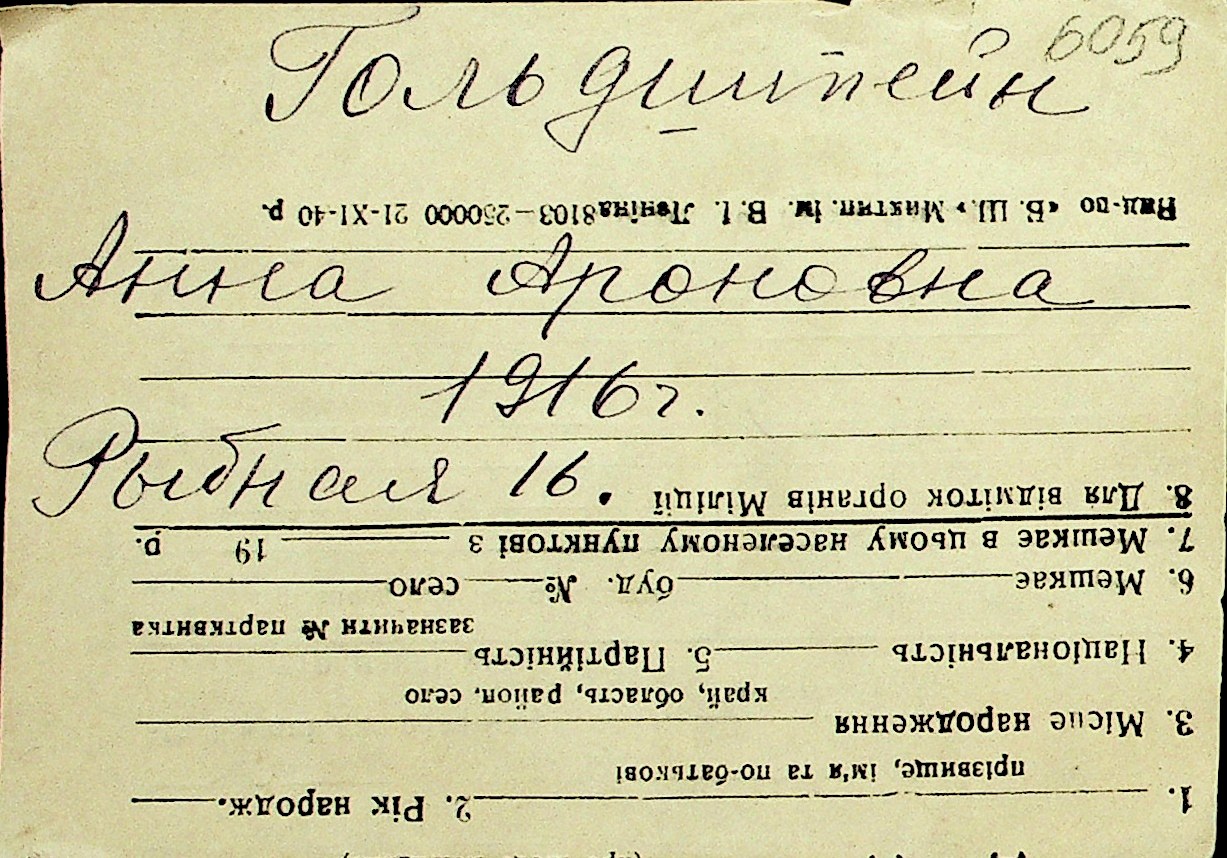 6059
Гольдштейн
Анна Ароновна
1916 г.
Рыбная 16.
1. 2. Рік народж.
прізвище, ім'я та по-батькові
3. Місце народження
край, область, район, село
4. Національність 5. Партійність
зазначити № партквитка
6. Мешкає буд. № село
7. Мешкає в цьому населеному пунктові з 19 р.
8. Для відміток органів Міліції
Вид-во «Б. Ш.» Миктип. ім. В. І. Леніна 8103—250000 21-XI-40 р.